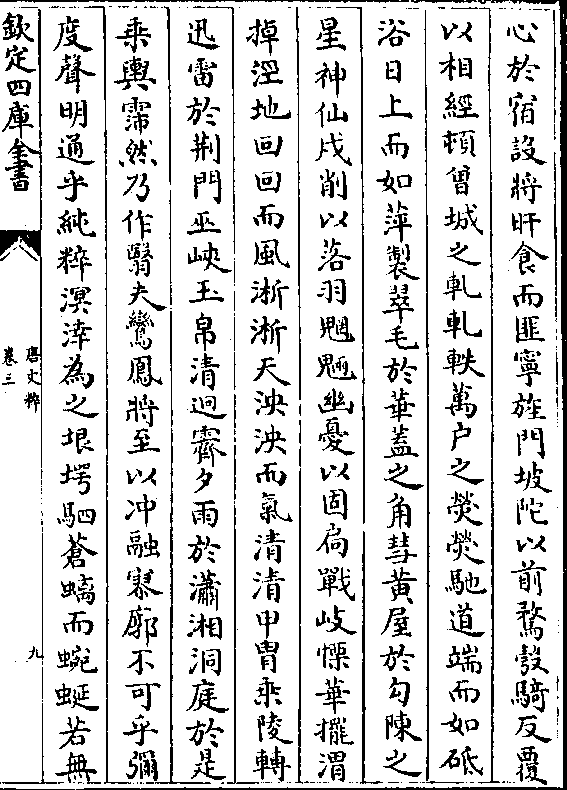 心於宿設將旰食而匪寧旌門坡陀以前騖彀騎反覆
以相經頓曾城之軋軋軼萬户之熒熒馳道端而如砥
浴日上而如萍掣翠旄於華蓋之角彗黄屋於勾陳之
星神仙戍削以落羽魍魎幽憂以固扃戰岐慄華擺渭
掉涇地回回而風淅淅天泱泱而氣清清甲胄乘陵轉
迅雷於荆門巫峽玉帛清迥霽夕雨於瀟湘洞庭於是
乘輿霈然乃作翳夫鸞鳳將至以冲融寥廓不可乎彌
度聲明通乎純粹溟涬為之垠堮駟蒼螭而蜿蜒若無
欽定四庫全書
唐文粹
卷三
九